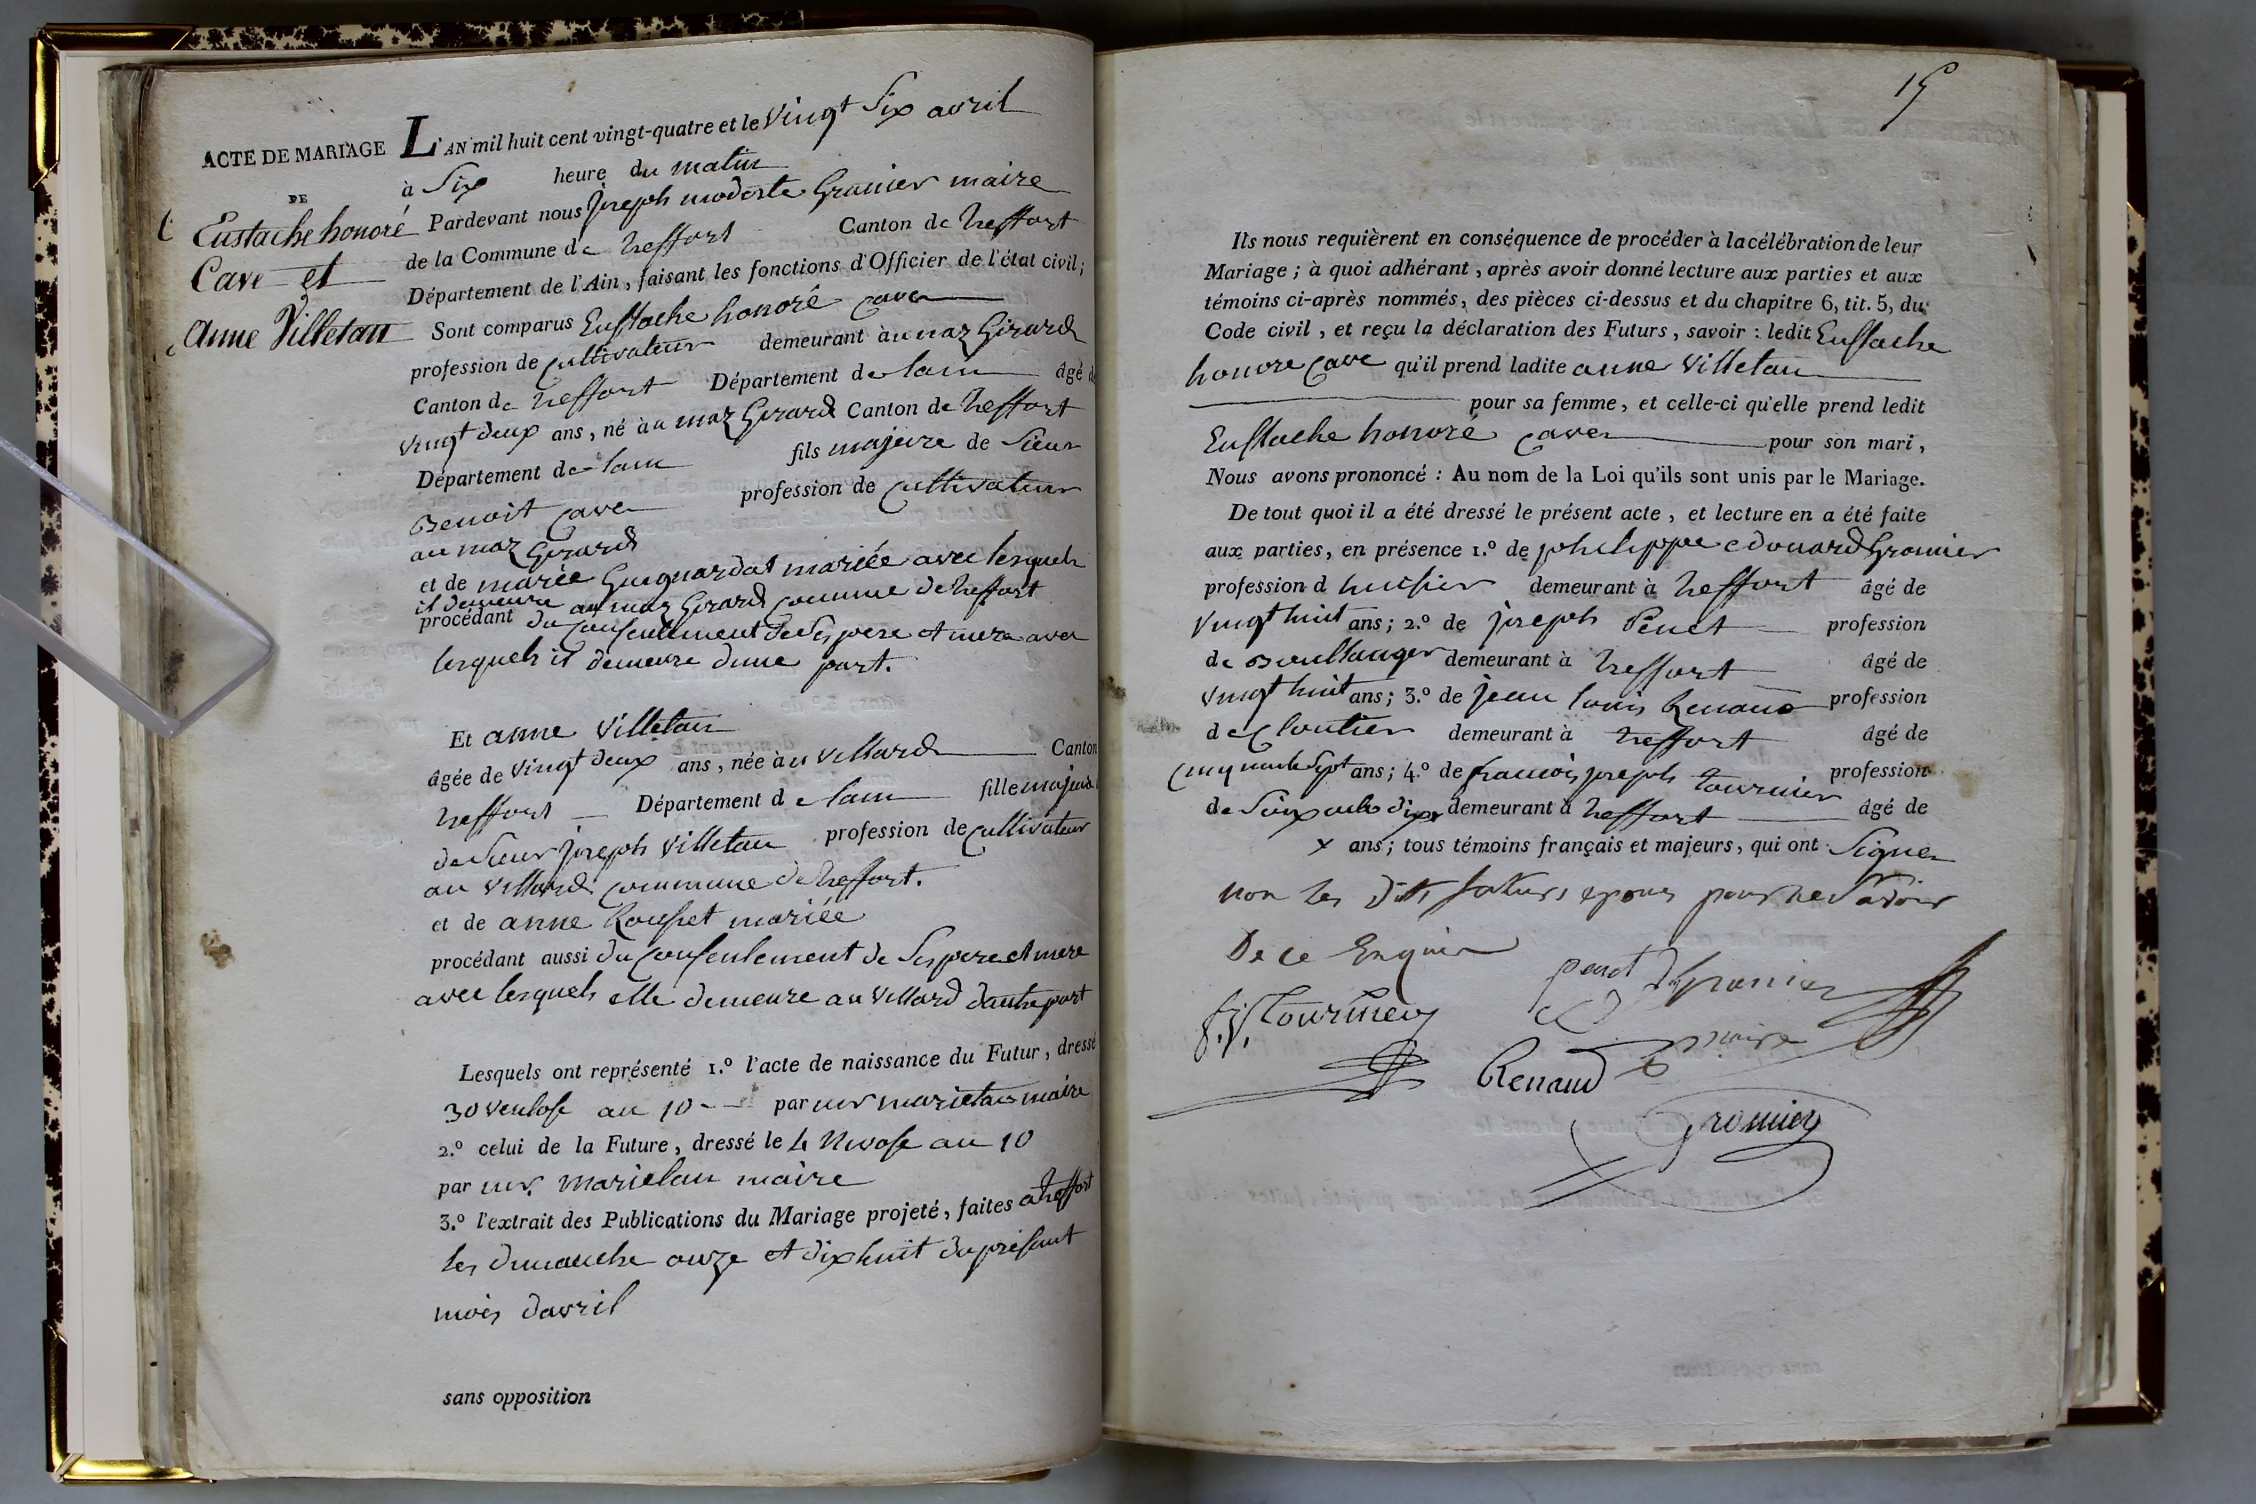 ACTE DE MARIAGE
DE
Eustache honoré
Cave et
anne Villetan
L'AN mil huit cent vingt-quatre et le vingt Six avril
à Six heure du matin
Pardevant nous joseph modeste Granier maire
de la Commune de treffort Canton de treffort
Département de l'Ain, faisant les fonctions d'Officier de l'état civil;
Sont comparus Eustache honoré Cave
profession de cultivateur demeurant au maz Girard
Canton de treffort Département de lain âgé de
vingt deux ans, né au maz Girard Canton de treffort
Département de lain fils majeure de Sieur
Benoit Cave profession de cultivateur
au maz Girard
et de marie Guignardat mariée avec lesquels
il demeure au maz Girard commune de treffort
procédant du consentement de Ses pere et mere avec
lesquels il demeure dune part.
Et anne Villetan
âgée de vingt deux ans, née au villard Canton
treffort Département de lain fille majeure
de Sieur joseph Villetan profession de cultivateur
au villard commune de treffort.
et de anne Rousset mariée
procédant aussi du consentement de Ses pere et mere
avec lesquels elle demeure au villard dautre part
Lesquels ont représenté 1.º l'acte de naissance du Futur, dressé
30 ventose an 10 par mr marietan maire
2.º celui de la Future, dressé le 4 Nivose an 10
par mr. marietan maire
3.º l'extrait des Publications du Mariage projeté, faites a treffort
les dimanche onze et dixhuit du présant
mois davril
sans opposition
15
Ils nous requièrent en conséquence de procéder à la célébration de leur
Mariage; à quoi adhérant, après avoir donné lecture aux parties et aux
témoins ci-après nommés, des pièces ci-dessus et du chapitre 6, tit. 5, du
Code civil, et reçu la déclaration des Futurs, savoir: ledit Eustache
honore Cave qu'il prend ladite anne Villetan
pour sa femme, et celle-ci qu'elle prend ledit
Eustache honoré Cave pour son mari,
Nous avons prononcé: Au nom de la Loi qu'ils sont unis par le Mariage.
De tout quoi il a été dressé le présent acte, et lecture en a été faite
aux parties, en présence 1.º de philippe edouard Gromier
profession d huissier demeurant à treffort âgé de
vingt huit ans; 2.º de joseph Penet profession
de Boullanger demeurant à treffort âgé de
vingt huit ans; 3.º de jean louis Renaud profession
de Cloutier demeurant à treffort âgé de
cinquante Sept ans; 4.º de francois joseph tournier profession
de Soixante dix demeurant à treffort âgé de
x ans; tous témoins français et majeurs, qui ont Signe
non les dits futurs epoux pour ne Savoir
De ce Enquis
penet Granier
f. j. tournier maire
Renaud
Gromier